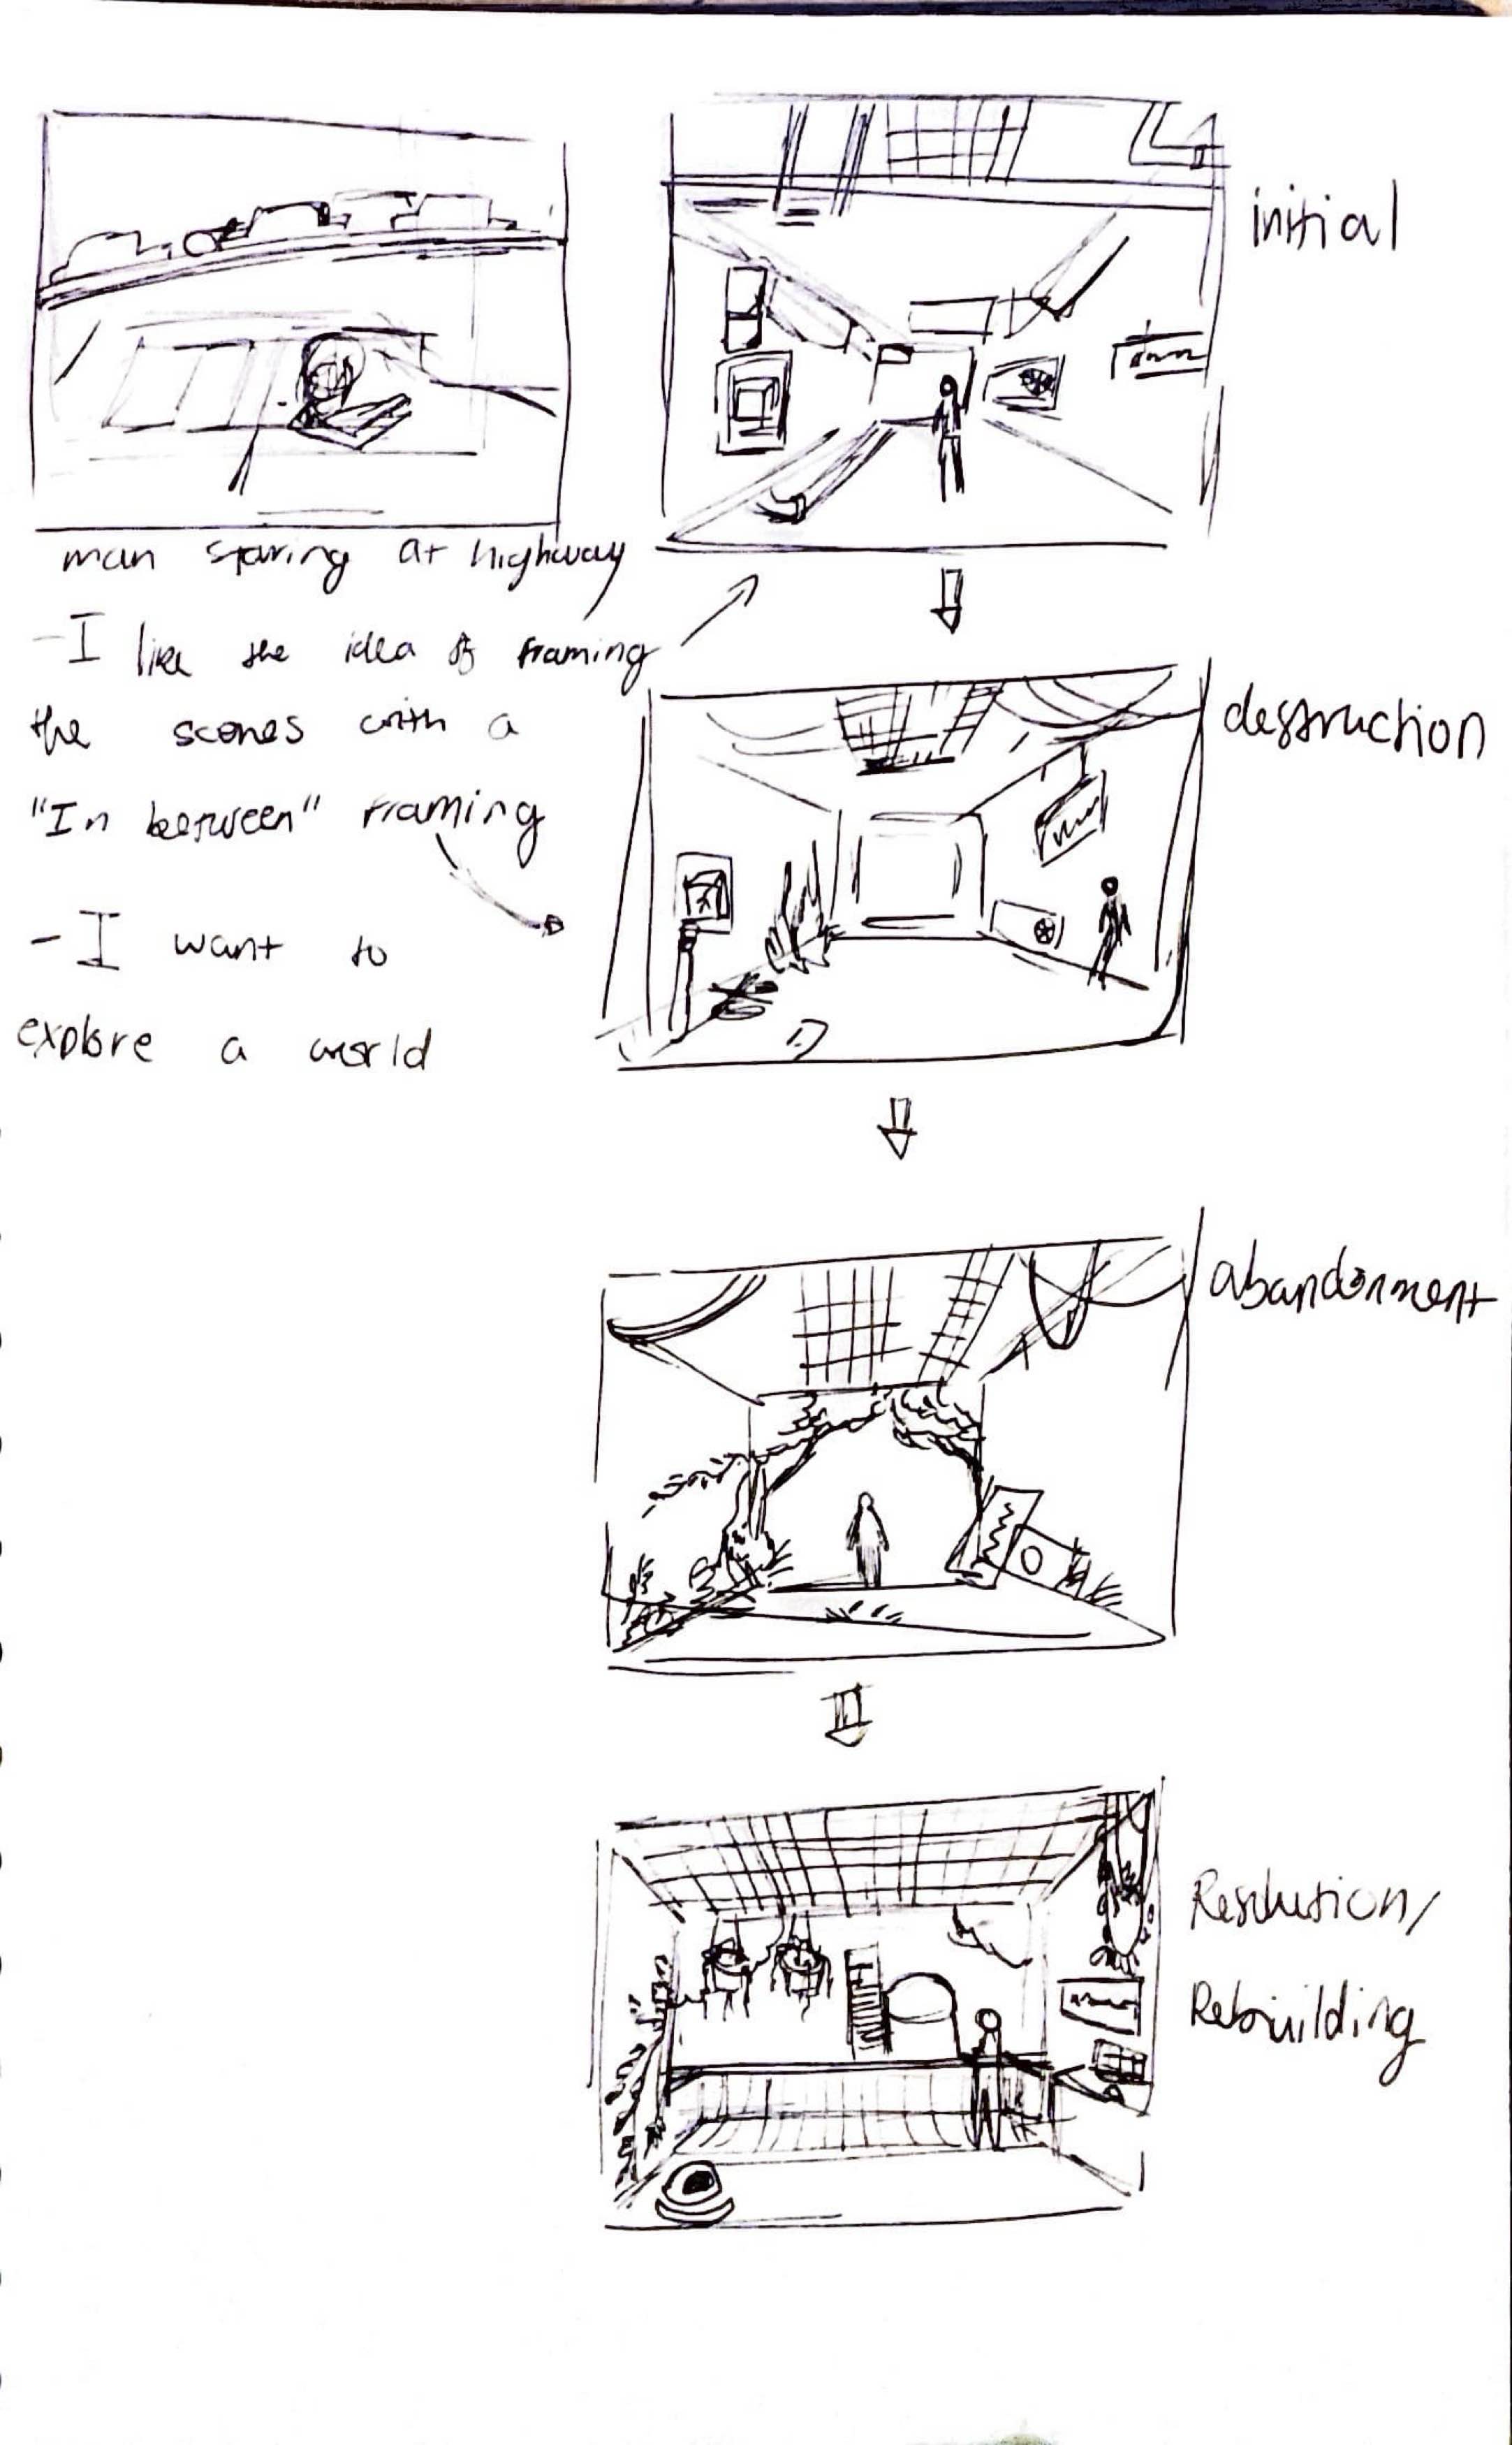 initial
man staring at highway
-I like the idea of framing
the scenes with a
"In between" framing
-I want to
explore a world
destruction
abandonment
Resolution/
Rebuilding